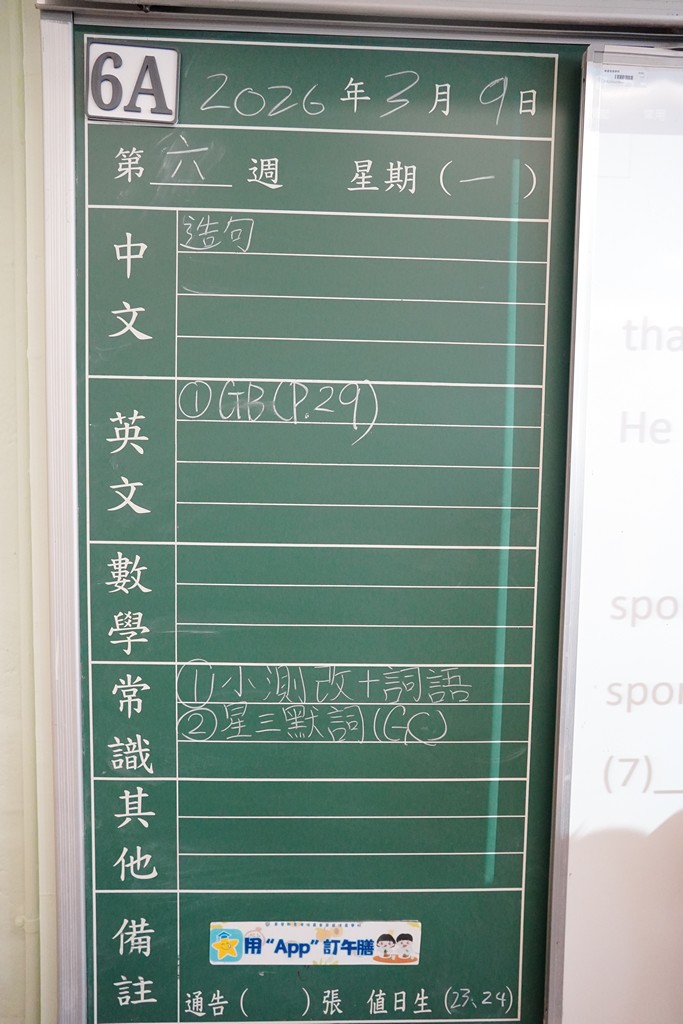 6A 2026年3月9日
第六週 星期(一)
中文
造句
英文
①GB(P.29)
數學
常識
①小測改+詞語
②星三默詞(GC)
其他
備註
用“App”訂午膳
通告( )張 值日生(23、24)
tha
He
spo
spor
(7)_